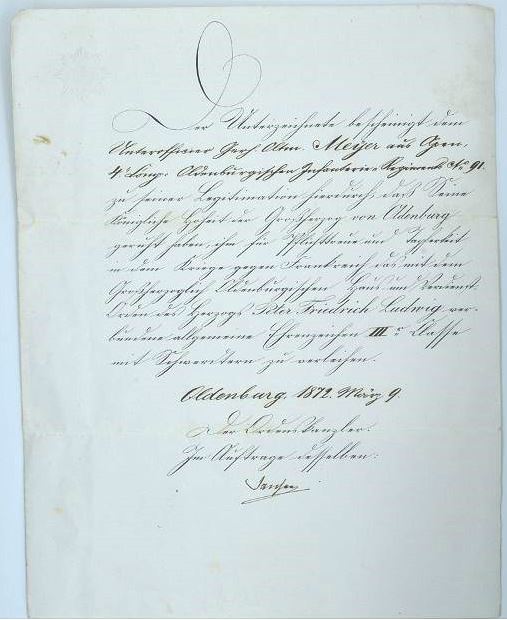 Der Unterzeichnete bescheinigt dem
Unterofficier Gerh. Oltm. Meyer aus Apen,
4t Comp. Oldenburgischen Infanterie-Regiments No 91.
zu seiner Legitimation hierdurch, daß Seine
Königliche Hoheit der Großherzog von Oldenburg
geruht haben, ihm für Pflichttreue und Tapferkeit
in dem Kriege gegen Frankreich das mit dem
Großherzoglich Oldenburgischen Haus- und Verdienst-
Orden des Herzogs Peter Friedrich Ludwig ver-
bundene allgemeine Ehrenzeichen III r Classe
mit Schwertern zu verleihen.
Oldenburg, 1872. März 9.
Der Ordenskanzler.
Im Auftrage desselben: